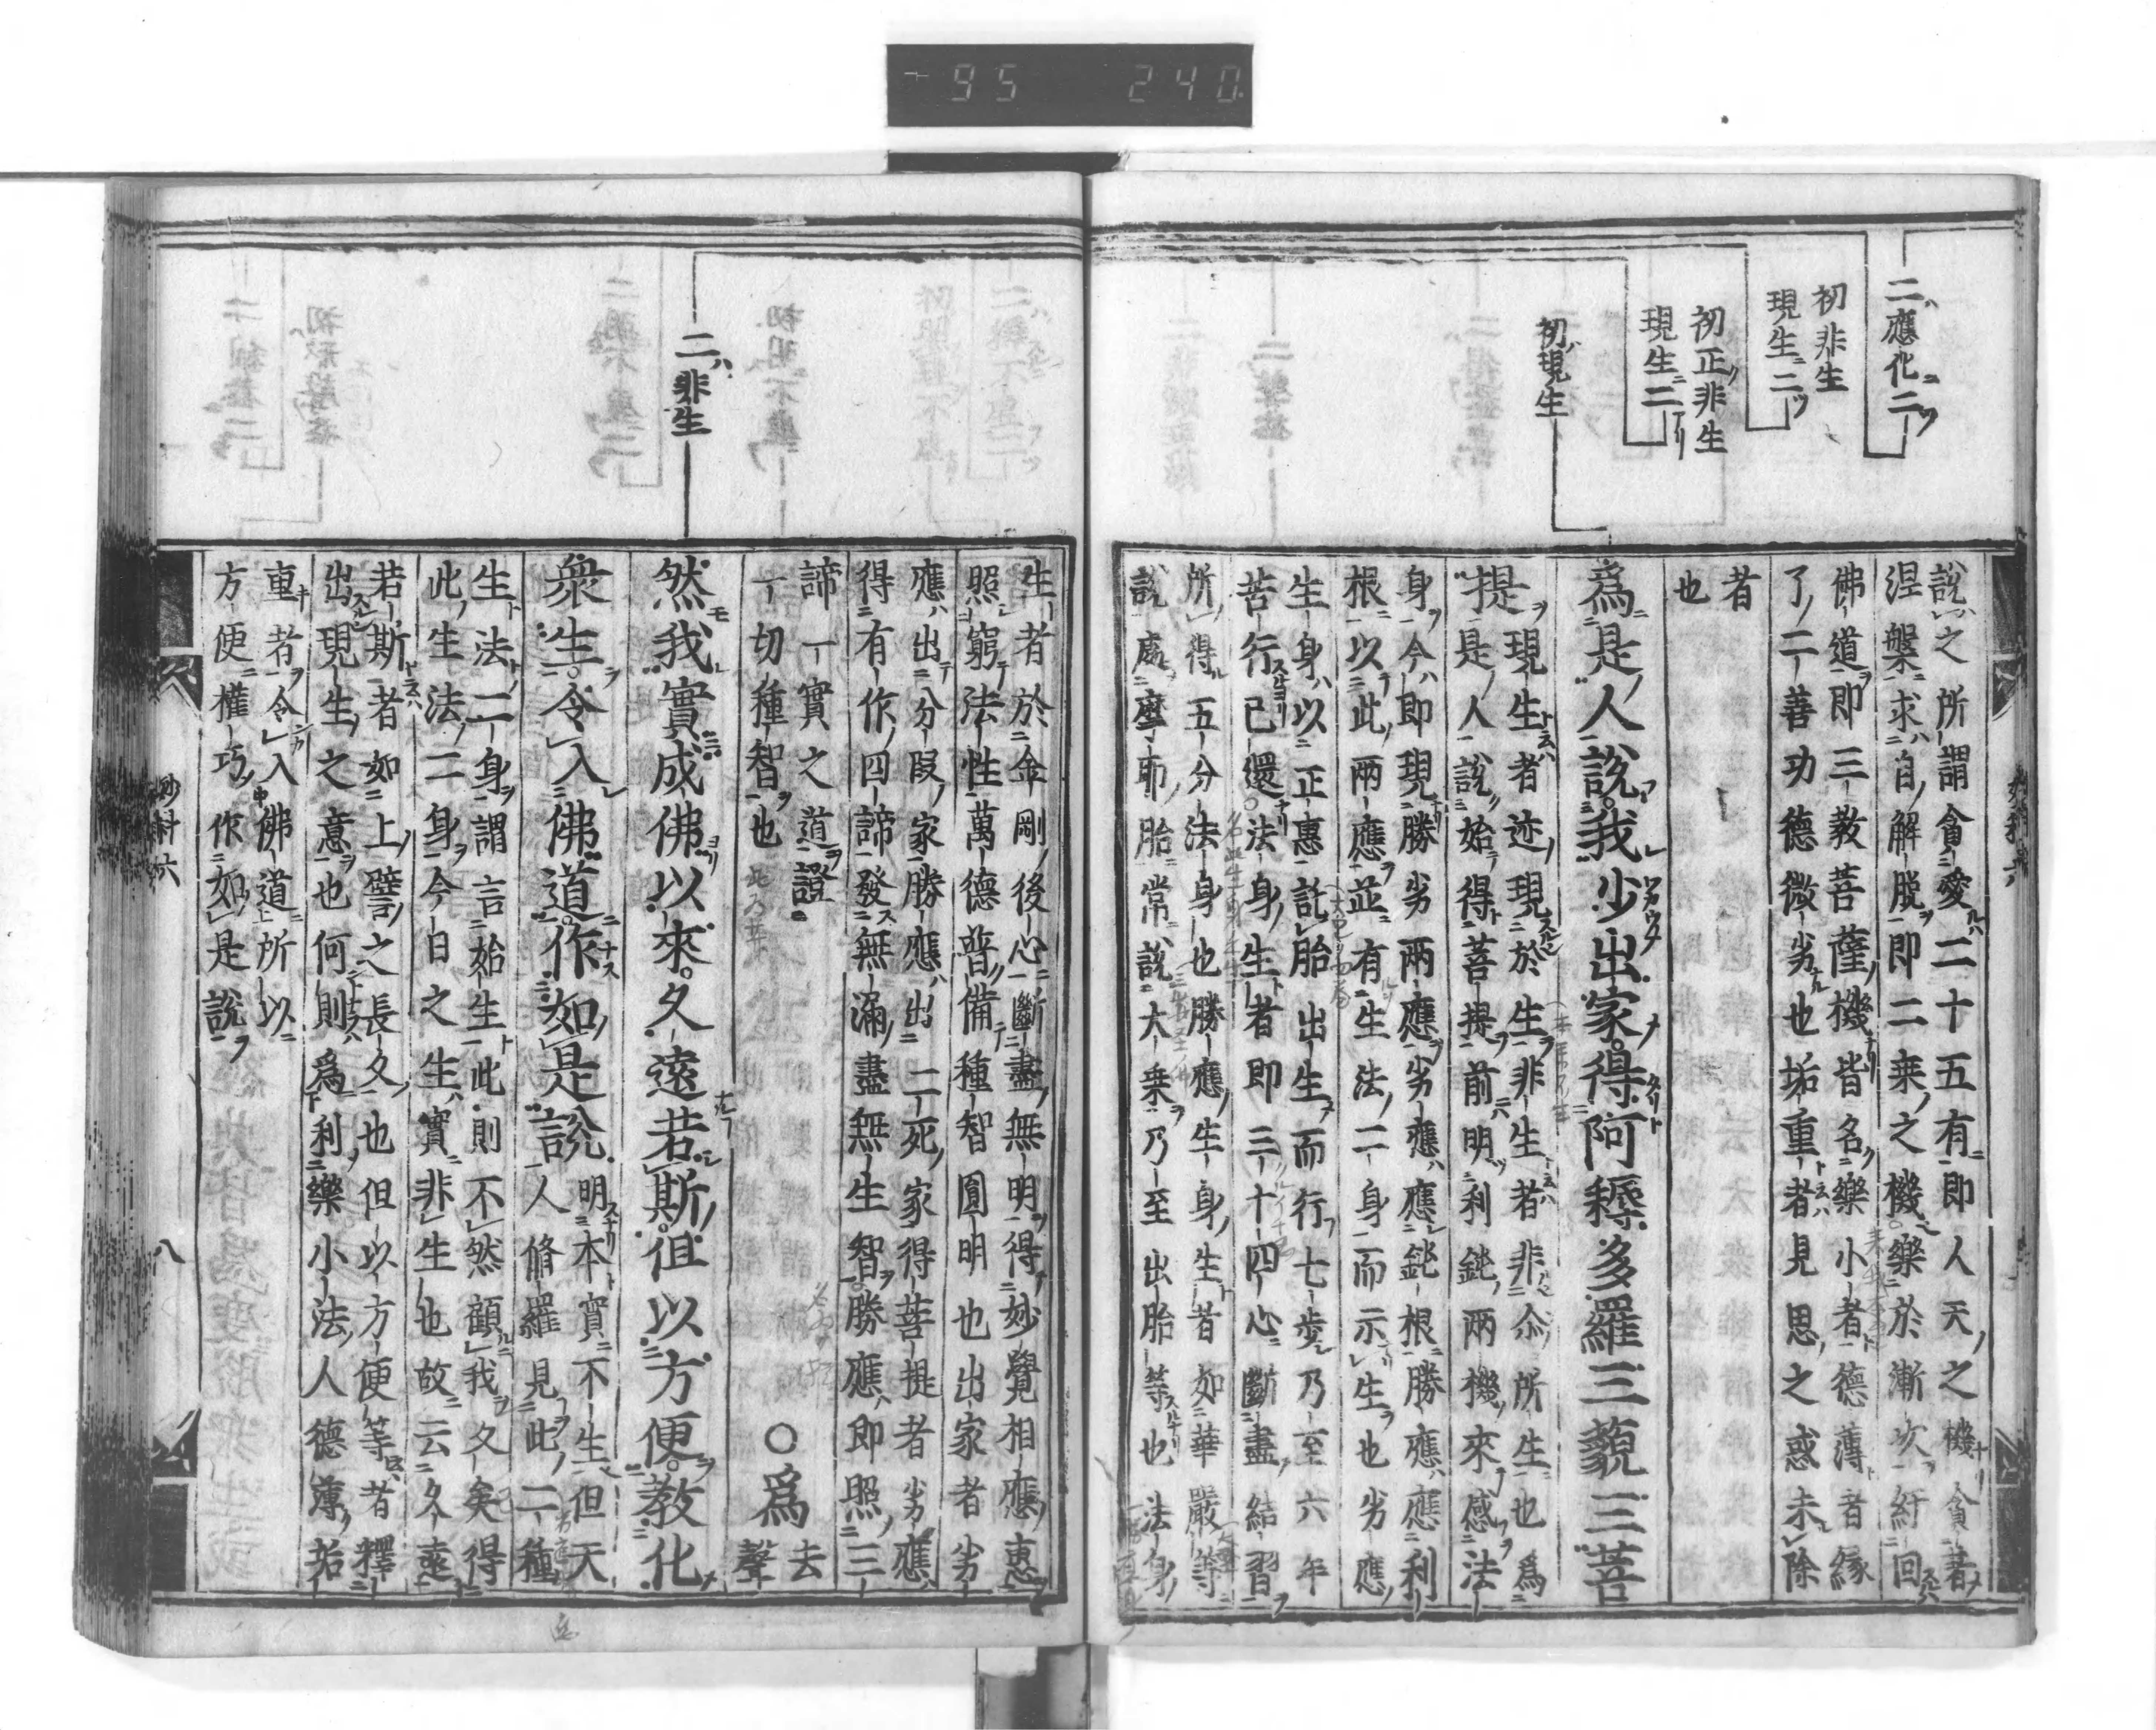 95 240
二應化二
初非生
現生二
初正非生
現生二
初現生
說之所謂貪愛二十五有即人天之機貪著
涅槃求自解脫即二乘之機樂於漸次紆回
佛道即三教菩薩機皆名樂小者德薄者緣
了二善功德微劣也垢重者見思之惑未除
者
也
爲是人說我少出家得阿耨多羅三藐三菩
提現生者迹現於生非生者非尒所生也爲
是人說始得菩提前明利鈍兩機來感法
身今即現勝劣兩應劣應應鈍根勝應應利
根以此兩應並有生法二身而示生也劣應
生身以正惠託胎出生而行七步乃至六年
苦行已還法身生者即三十四心斷盡結習
所得五分法身也勝應生身生者如華嚴等
說處摩耶胎常說大乘乃至出胎等也法身
二非生
生者於金剛後心斷盡無明得妙覺相應惠
照窮法性萬德普備種智圓明也出家者劣
應出分段家勝應出二死家得菩提者劣應
得有作四諦發無漏盡無生智勝應即照三
諦一實之道證
一切種智也
○爲去聲
然我實成佛以來久遠若斯但以方便教化
衆生令入佛道作如是說明本實不生但天
人脩羅見此二種
生法二身謂言始生此則不然顧我久矣得
此生法二身今日之生實非生也故云久遠
若斯者如上譬之長久也但以方便等者釋
出現生之意也何則爲利樂小法人德薄垢
重者令入佛道所以
方便權巧作如是說
妙科六
八